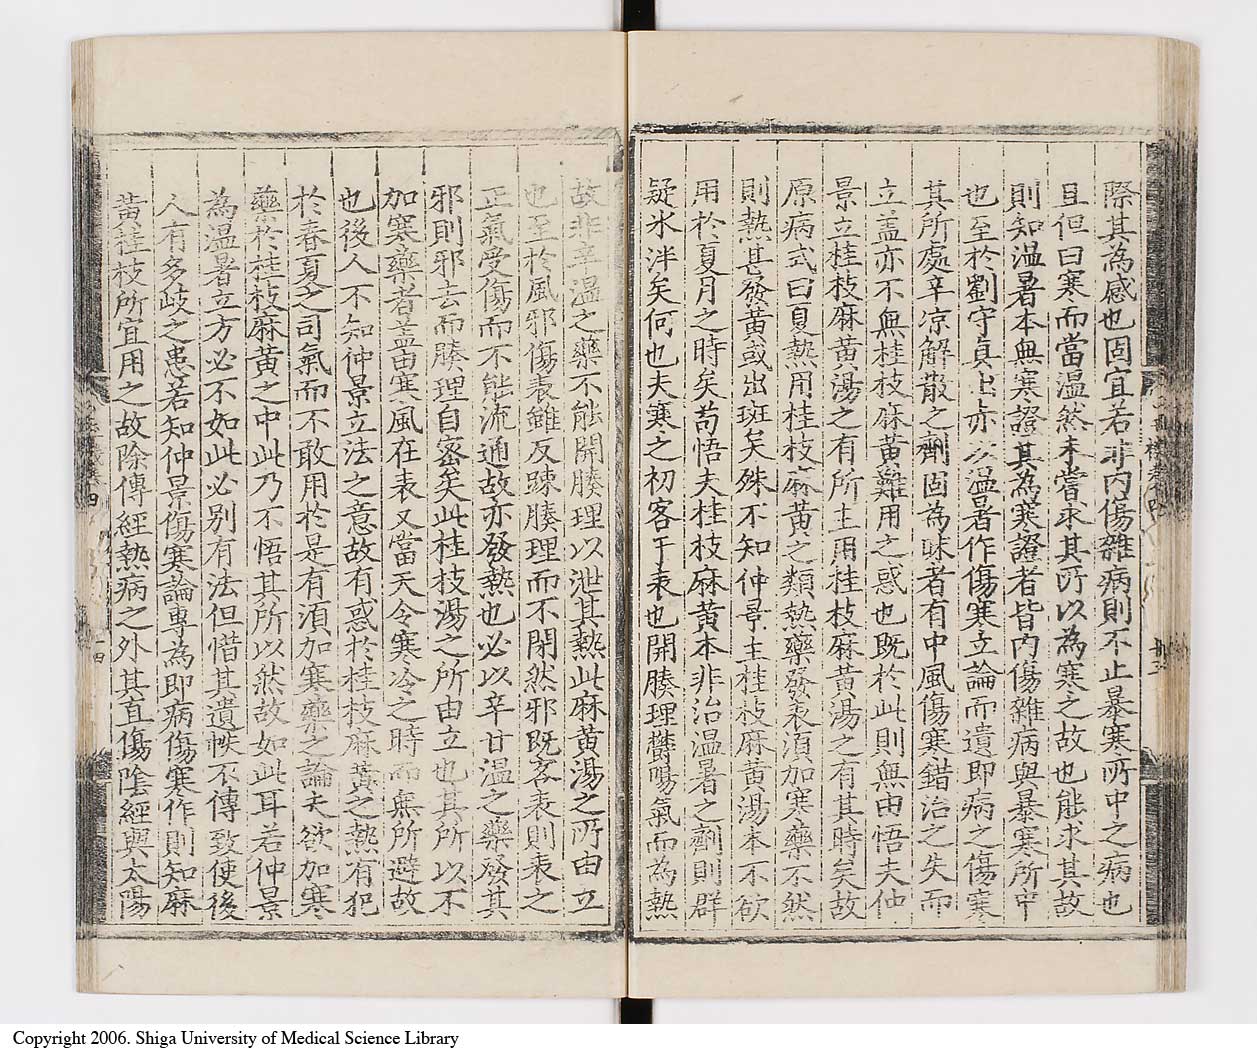 際其為感也固宜若非内傷雜病則不止暴寒所中之病也
且但曰寒而當溫然未嘗求其所以為寒之故也能求其故
則知溫暑本無寒證其為寒證者皆内傷雜病與暴寒所中
也至於劉守真上亦以溫暑作傷寒立論而遺即病之傷寒
其所處辛凉解散之劑固為昧者有中風傷寒錯治之失而
立盖亦不無桂枝麻黄難用之惑也既於此則無由悟夫仲
景立桂枝麻黄湯之有所主用桂枝麻黄湯之有其時矣故
原病式曰夏熱用桂枝麻黄之類熱藥發表湏加寒藥不然
則熱甚發黄或出斑矣殊不知仲景主桂枝麻黄湯本不欲
用於夏月之時矣苟悟夫桂枝麻黄本非治溫暑之劑則群
疑氷泮矣何也夫寒之初客于表也開腠理欝陽氣而為熱
故非辛溫之藥不能開腠理以泄其熱此麻黄湯之所由立
也至於風邪傷表雖反踈腠理而不閉然邪既客表則表之
正氣受傷而不能流通故亦發熱也必以辛甘溫之藥發其
邪則邪去而腠理自密矣此桂枝湯之所由立也其所以不
加寒藥者盖由寒風在表又當天令寒冷之時而無所避故
也後人不知仲景立法之意故有惑於桂枝麻黄之熱有犯
於春夏之司氣而不敢用於是有湏加寒藥之論夫欲加寒
藥於桂枝麻黄之中此乃不悟其所以然故如此耳若仲景
為溫暑立方必不如此必別有法但惜其遺帙不傳致使後
人有多岐之患若知仲景傷寒論專為即病傷寒作則知麻
黄桂枝所宜用之故除傳經熱病之外其直傷陰經與太陽